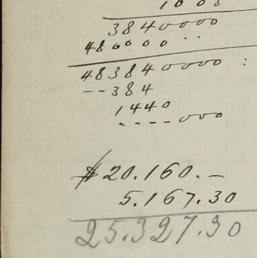 1008
3840000
480000 ..
483840000 :
--384
1440
----000
$20.160.-
5.167.30
25.327.30